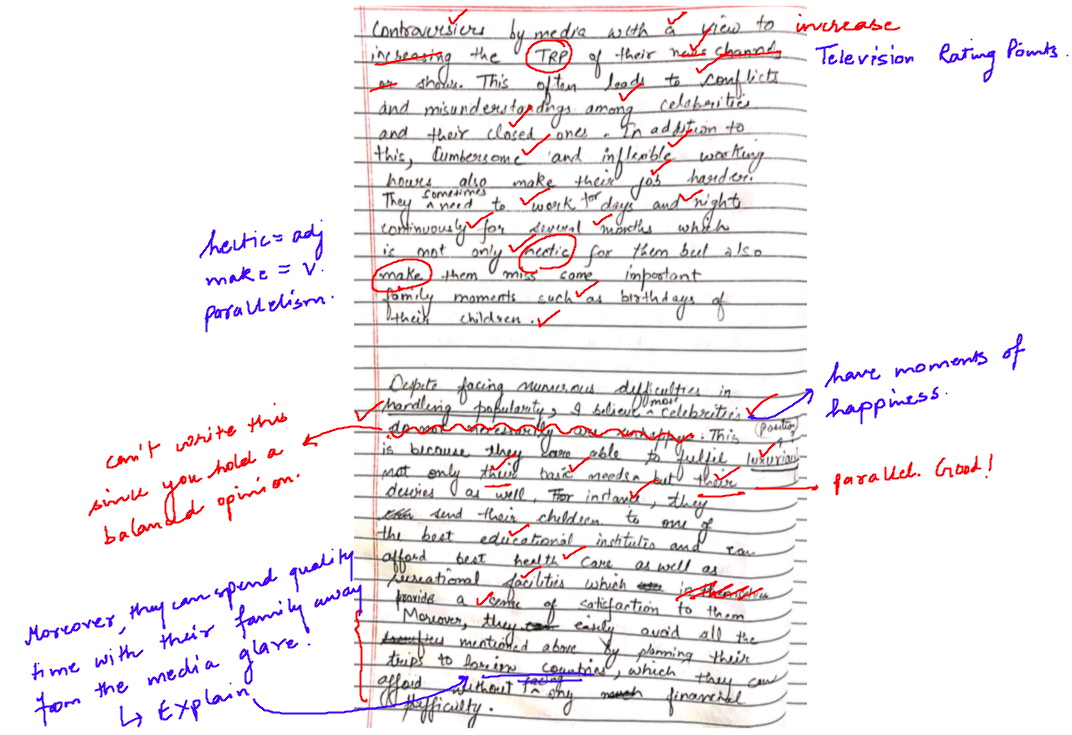 controversies by media with a view to increase
increasing the TRP of their news channels
Television Rating Points.
or shows. This often leads to conflicts
and misunderstandings among celeberities
and their closed ones. In addition to
this, Cumbersome and inflexible working
hours also make their job harder.
They sometimes need to work for days and night
continuously for several months which
is not only hectic for them but also
make them miss some important
family moments such as birthdays of
their children.
hectic = adj
make = v.
parallelism.
Despite facing numerous difficulties in
handling popularity, I believe most celebrities
do not necessarily are unhappy. This
is because they are able to fulfil luxurious
(positive)
not only their basic needs but their
desires as well. For instance, they
send their children to one of
the best educational institutes and can
afford best health care as well as
recreational facilities which in themselves
provide a sense of satisfaction to them
Moreover, they easily avoid all the
mentioned above by planning their
trips to foreign countries, which they can
afford without facing any much financial
difficulty.
have moments of
happiness.
can't write this
since you hold a
balanced opinion.
parallel. Good!
Moreover, they can spend quality
time with their family away
from the media glare!
↳ Explain